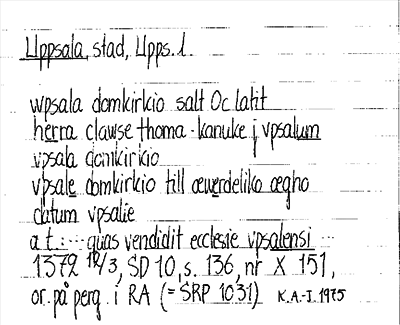 Uppsala, stad, Upps. l.
wpsala domkirkio salt Oc latit
herra clawse thoma · kanuke j vpsalum
vpsala domkirkio
vpsale domkirkio till æwerdeliko ægho
datum vpsalie
a t.: ··· quas vendidit ecclesie vpsalensi ···
1379 12/3, SD 10, s. 136, nr X 151,
or. på perg. i RA (= SRP 1031) K.A-J. 1975